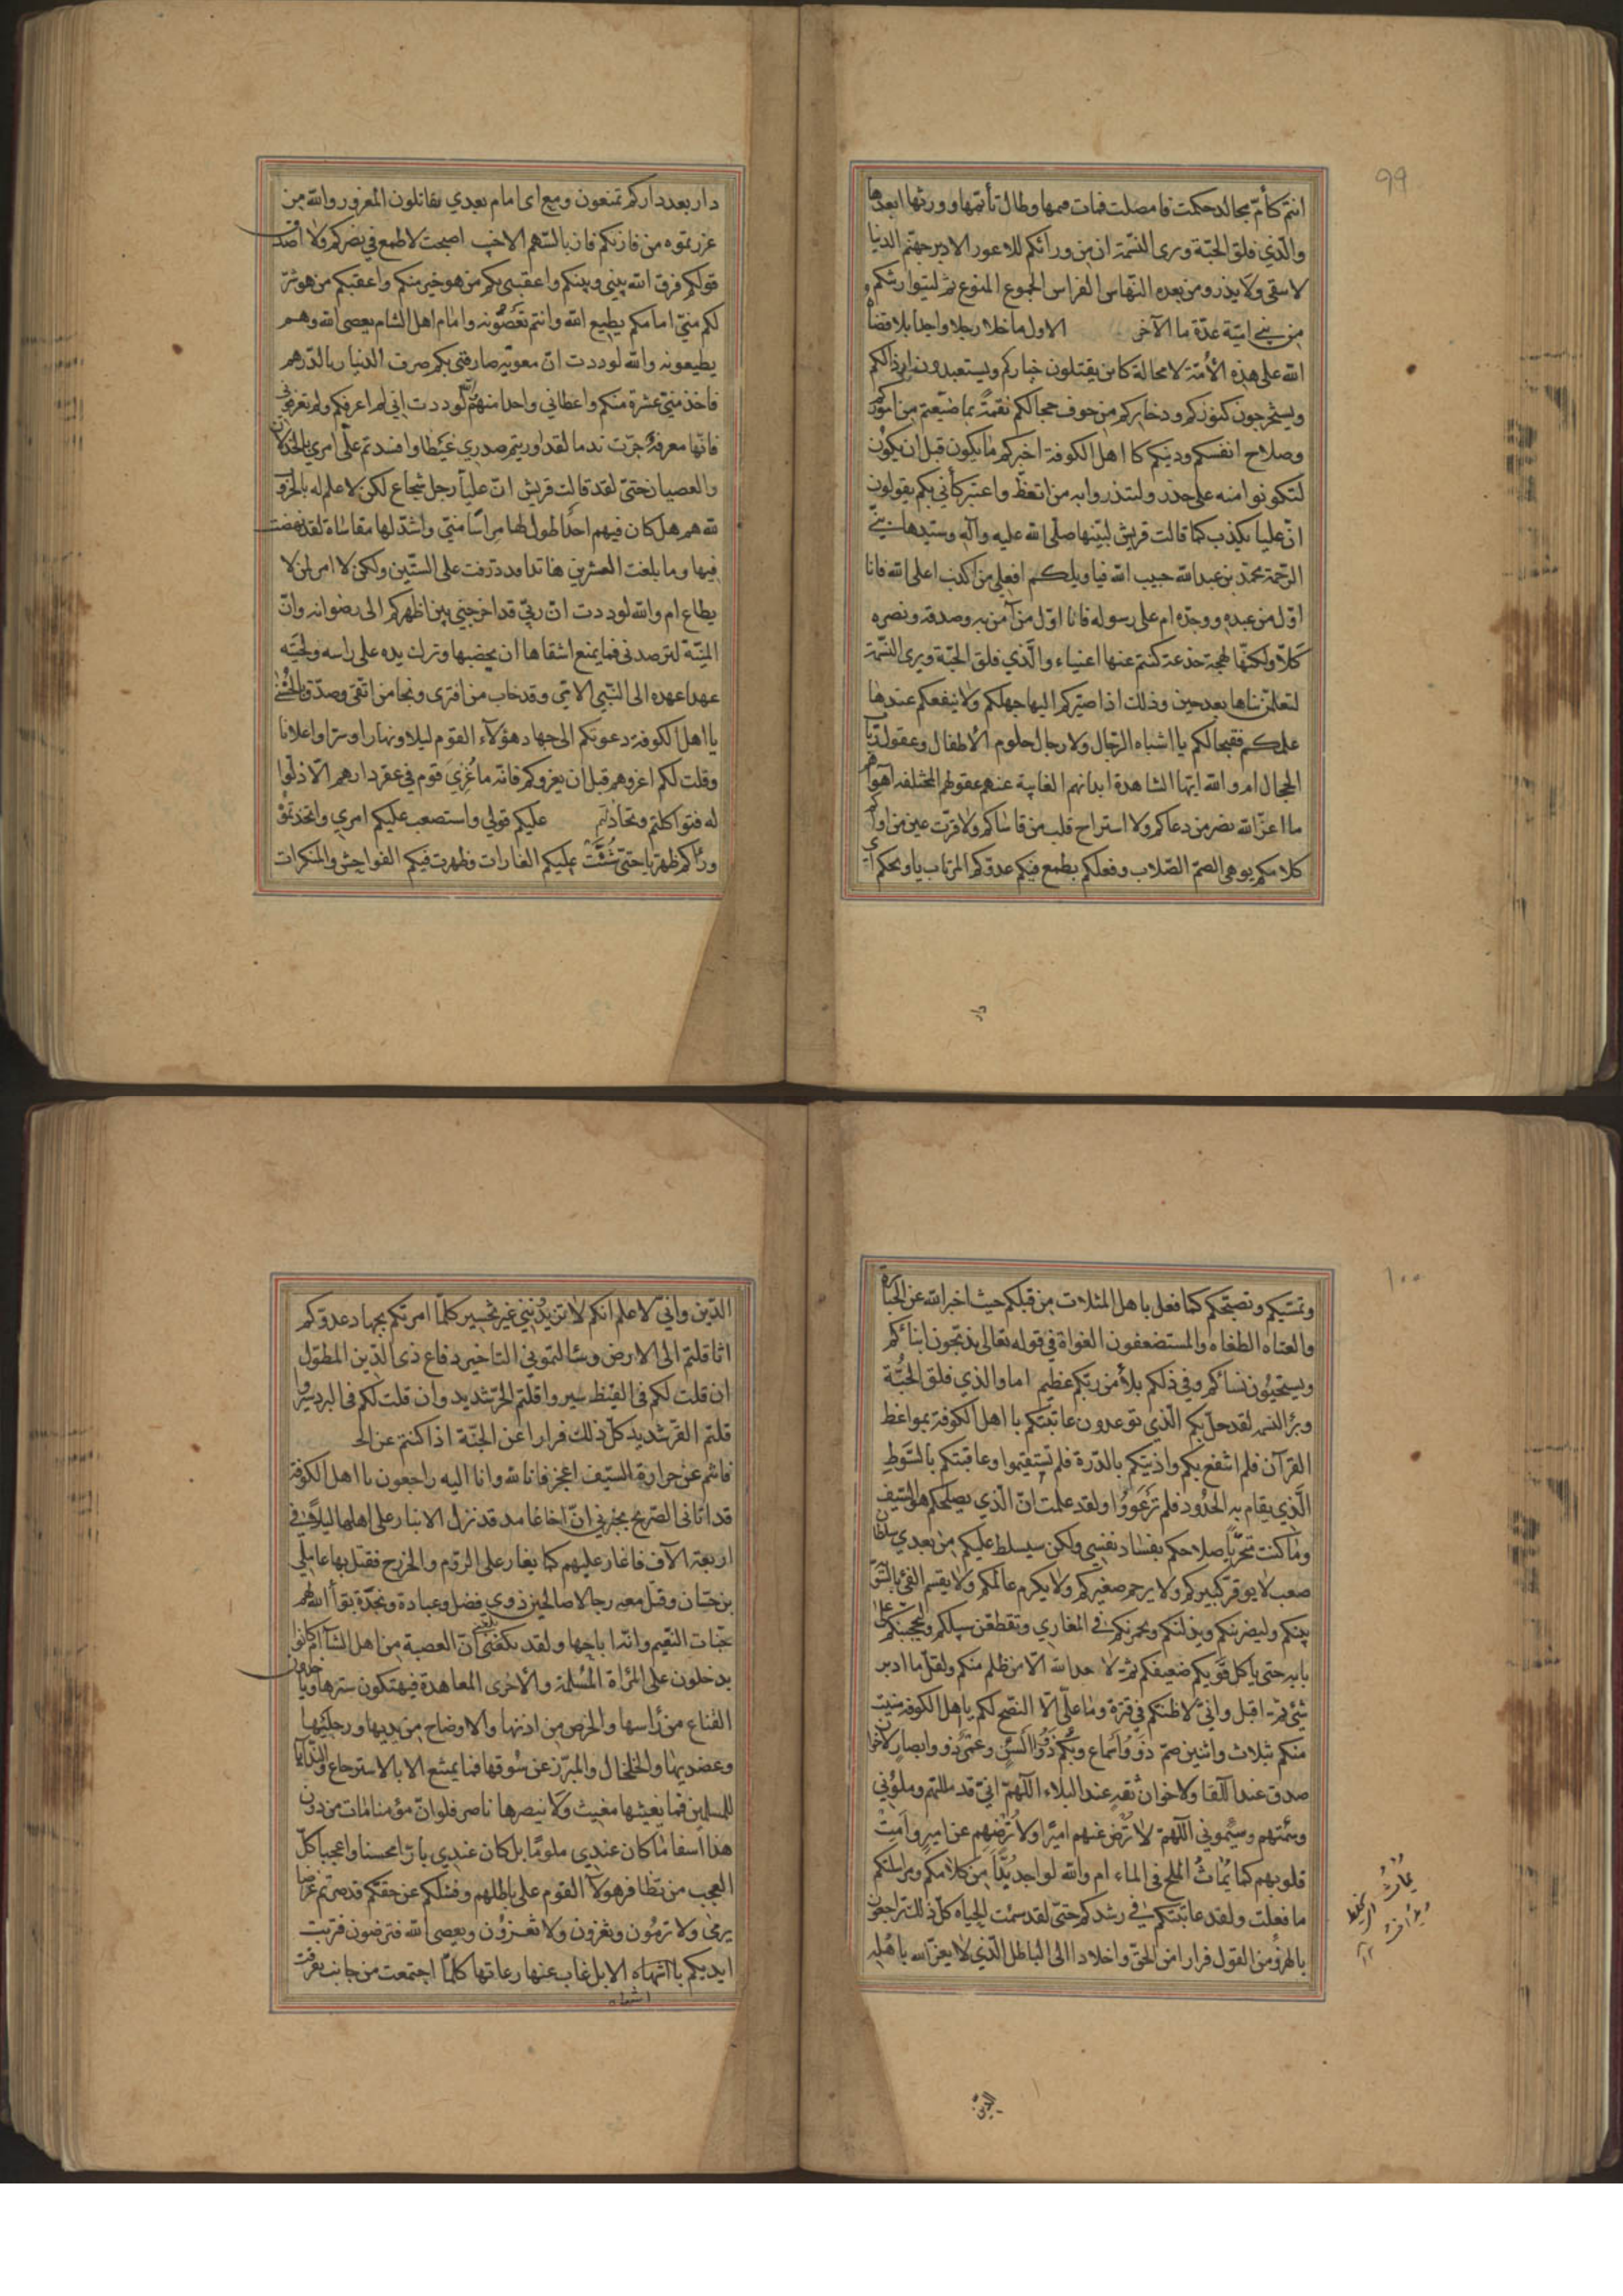 99
انتم كأمّ مجالد حملت فاملصت فمات قيمها وطال تأيمها وورثها ابعدها
والّذي فلق الحبّة وبرى النّسمة ان من ورائكم للاعور الادبر جهنّم الدنيا
لا يبقي ولا يذر ومن بعده النّهاس الفراس الجموع المنوع ثمّ ليتوارثنّكم
من بني اميّة عدّة ما الآخر الاول ما خلا رجلا واحدا بلاء قضاه
الله على هذه الأمّة لا محالة كائن يقتلون خياركم ويستعبدون ارذالكم
ويستخرجون كنوزكم وذخايركم من جوف حجالكم نقمة بما ضيّعتم من اموركم
وصلاح انفسكم ودينكم يا اهل الكوفة اخبركم ما يكون قبل ان يكون
لتكونوا منه على حذر ولتنذروا به من اتعظ واعتبر كأنّي بكم يقولون
انّ عليّا يكذب كما قالت قريش لنبيّها صلّى الله عليه وآله وسيّدها نبيّ
الرّحمة محمّد بن عبدالله حبيب الله فيا ويلكم افعلى من اكذب اعلى الله فانا
اوّل من عبده ووحّده ام على رسوله فانا اوّل من آمن به وصدقه ونصره
كلّا ولكنّها لهجة خدعة كنتم عنها اغنياء والّذي فلق الحبّة وبرى النّسمة
لتعلمنّ نباها بعد حين وذلك اذا صيّركم اليها جهلكم ولا ينفعكم عندها
علمكم فقبحا لكم يا اشباه الرّجال ولا رجال حلوم الأطفال وعقول ربّات
الحجال ام والله ايّها الشاهدة ابدانهم الغايبة عنهم عقولهم المختلفه اهواؤهم
ما اعزّ الله نصر من دعاكم ولا استراح قلب من قاساكم ولا قرّت عين من اواكم
كلامكم يوهي الصمّ الصّلاب وفعلكم يطمع فيكم عدوّكم المرتاب يا ويحكم اىّ
دار
دار بعد داركم تمنعون ومع اى امام بعدي تقاتلون المغرور والله من
غررتموه من فاز بكم فاز بالسّهم الاخيب اصبحت لا اطمع في نصركم ولا اصدّق
قولكم فرق الله بيني وبينكم واعقبني بكم من هو خير منكم واعقبكم من هو شرّ
لكم منّي امامكم يطيع الله وانتم تعصونه وامام اهل الشام يعصى الله وهم
يطيعونه والله لوددت انّ معويّه صارفني بكم صرف الدنيار بالدّرهم
فاخذ منّي عشرة منكم واعطاني واحدا منهم والله لوددت انى لم اعرفكم ولم تعرفوني
فانّها معرفة جرّت ندما لقد اوريتم صدري غيظا وافسدتم علىّ امري بالخذلان
والعصيان حتىّ لقد قالت قريش انّ عليّا رجل شجاع لكن لا علم له بالحروب
لله هم هل كان فيهم احد اطول لها مراسا منّي واشدّ لها مقاساة لقد نهضت
فيها وما بلغت العشرين ها انا قد ذرفت على الستّين ولكن لا امر لمن لا
يطاع ام والله لوددت انّ ربّي قد اخرجني من بين اظهركم الى رضوانه وانّ
المنيّة لترصدنى فما يمنع اشقاها ان يخضبها وترك يده على راسه ولحيته
عهدا عهده الى النّبي الامّي وقد خاب من افترى ونجا من اتّقى وصدّق بالحسنى
يا اهل الكوفة دعوتكم الى جهاد هؤلآء القوم ليلا ونهارا وسرّا واعلانا
وقلت لكم اغزوهم قبل ان يغزوكم فانّه ما غزي قوم في عقر دارهم الّا ذلّوا
له فتواكلتم وتخاذلتم عليكم قولى واستصعب عليكم امري واتّخذتموه
وراءكم ظهريا حتىّ شنّت عليكم الغارات وظهرت فيكم الفواحش والمنكرات
١٠٠
وتمسّيكم وتصبّحكم كما فعل باهل المثلات من قبلكم حيث اخبر الله عن الجبابرة
والعتاه الطغاه والمستضعفون الغواة في قوله تعالى يذبّحون ابنائكم
ويستحيون نسائكم وفي ذلكم بلاء من ربّكم عظيم اما والذي فلق الحبّة
وبرأ النسمه لقد حلّ بكم الّذي توعدون عاتبتكم يا اهل الكوفة بمواعظ
القرآن فلم انتفع بكم وادّبتكم بالدّرة فلم تستقيموا وعاقبتكم بالسّوط
الّذي يقام به الحدود فلم ترعووا ولقد علمت انّ الّذي يصلحكم هو السّيف
وما كنت متحرّيا صلاحكم بفساد نفسي ولكن سيسلط عليكم من بعدي سلطان
صعب لا يوقر كبيركم ولا يرحم صغيركم ولا يكرم عالمكم ولا يقسم الفئ بالسّويّة
بينكم وليضربنكم وليذلنكم ويجمرنكم في المغازي وتقطعن سبلكم وليحجبنكم على
بابه حتى ياكل قويّكم ضعيفكم ثمّ لا يبعد الله الّا من ظلم منكم ولقل ما ادبر
شئ ثمّ اقبل وانّي لاظنّكم في فترة وما علىّ الّا النصح لكم يا اهل الكوفه منيت
منكم بثلاث واثنين صمّ ذوو اسماع وبكم ذووا السن وعمي ذووا ابصار لا اخوان
صدق عند اللّقاء ولا اخوان ثقة عند البلاء اللّهمّ انّي قد مللتهم وملّوني
وسئمتهم وسئموني اللّهمّ لا ترض عنهم اميرا ولا ترضهم عن امير وامث
قلوبهم كما يماث الملح في الماء ام والله لو اجد بدّا من كلامكم ومراسلتكم
ما فعلت ولقد عاتبتكم في رشدكم حتىّ لقد سئمت الحياه كلّ ذلك تراجعون
بالهزؤ من القول فرارا من الحقّ واخلادا الى الباطل الّذي لا يعزّ الله باهله
يماث
الدّين
الدّين وانّي لاعلم انكم لا تزيدونني غير تخسير كلّما امرتكم بجهاد عدوّكم
اثاقلتم الى الارض وسئالتموني التاخير دفاع ذى الدّين المطول
ان قلت لكم فى القيظ سيروا قلتم الحرّ شديد وان قلت لكم فى البرد سيروا
قلتم القرّ شديد كلّ ذلك فرارا عن الجنّة اذا كنتم عن الحـ
فانتم عن حرارة السّيف اعجز فانا لله وانا اليه راجعون يا اهل الكوفة
قد اتانى الصّريخ يخبرني انّ اخا غامد قد نزل الانبار على اهلها ليلا في
اربعة الآف فاغار عليهم كما يغار على الرّوم والخزرج فقتل بها عاملي
بن حسّان وقتل معه رجالا صالحين ذوي فضل وعبادة ونجدة بوّأ الله لهم
جنّات النّعيم وانّه اباحها ولقد بلغني انّ العصبة من اهل الشآم كانوا
يدخلون على المرأة المسلمة والأخرى المعاهدة فيهتكون سترها وياخذون
القناع من رأسها والخرص من اذنها والاوضاح من يديها ورجليها
وعضديها والخلخال والميزر عن سوقها فما يمتنع الا بالاسترجاع والنّداء يا
للمسلمين فما يغيثها مغيث ولا ينصرها ناصر فلو انّ مؤمنا مات من دون
هذا اسفا ما كان عندي ملوما بل كان عندي بارّا محسنا واعجبا كلّ
العجب من تظافر هولآء القوم على باطلهم وفشلكم عن حقّكم قد صرتم غرضا
يرمى ولا ترمون وتغزون ولا تغزون ويعصى الله فترضون فتربت
ايديكم يا اشباه الابل غاب عنها رعاتها كلّما اجتمعت من جانب تفرّقت
اشباه